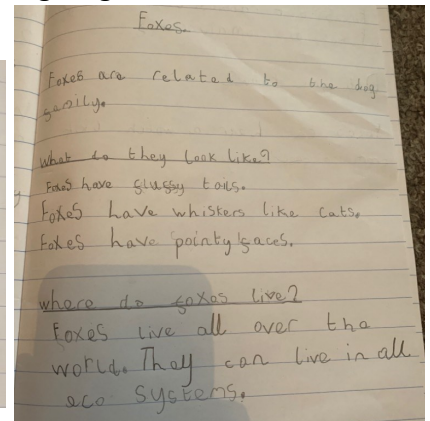 Foxes
Foxes are related to the dog
family.
What do they look like?
Foxes have fluffy tails.
Foxes have whiskers like cats.
Foxes have pointy faces.
where do foxes live?
Foxes live all over the
world. They can live in all
eco systems.